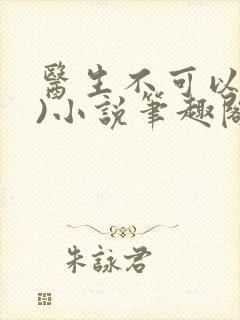 醫生不可以
)小說筆趣閣
朱詠君